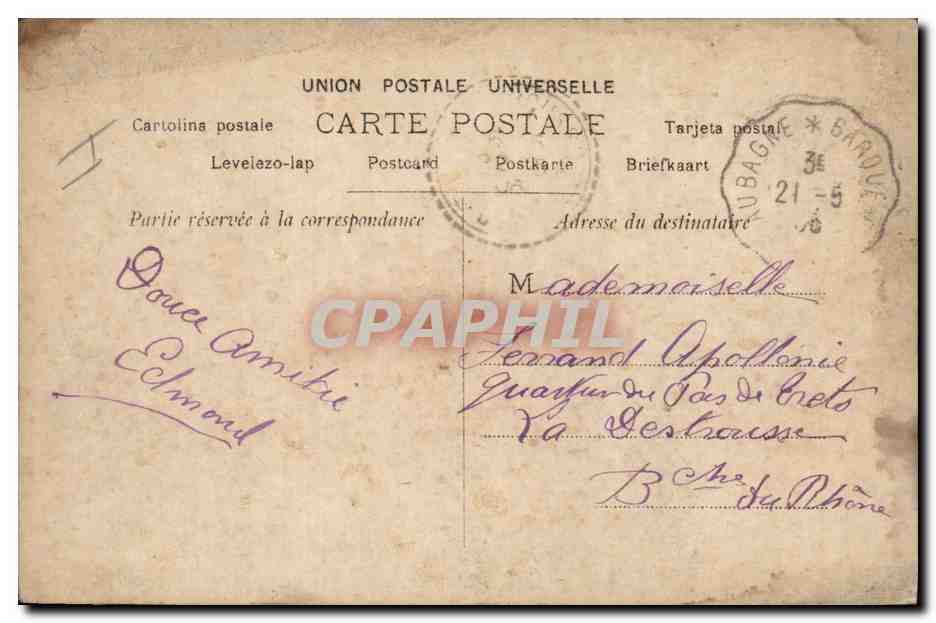 UNION POSTALE UNIVERSELLE
Cartolina postale CARTE POSTALE Tarjeta postal
Levelezo-lap Postcard Postkarte Briefkaart
Partie réservée à la correspondance
Adresse du destinataire
AUBAGNE * BARQUE
3E
21 -5
06
Douce Amitié
Edmond
Mademoiselle
Ferrand Apollonie
quartier du Pas de Trets
La Destrousse
Bches du Rhône
CPAPHIL